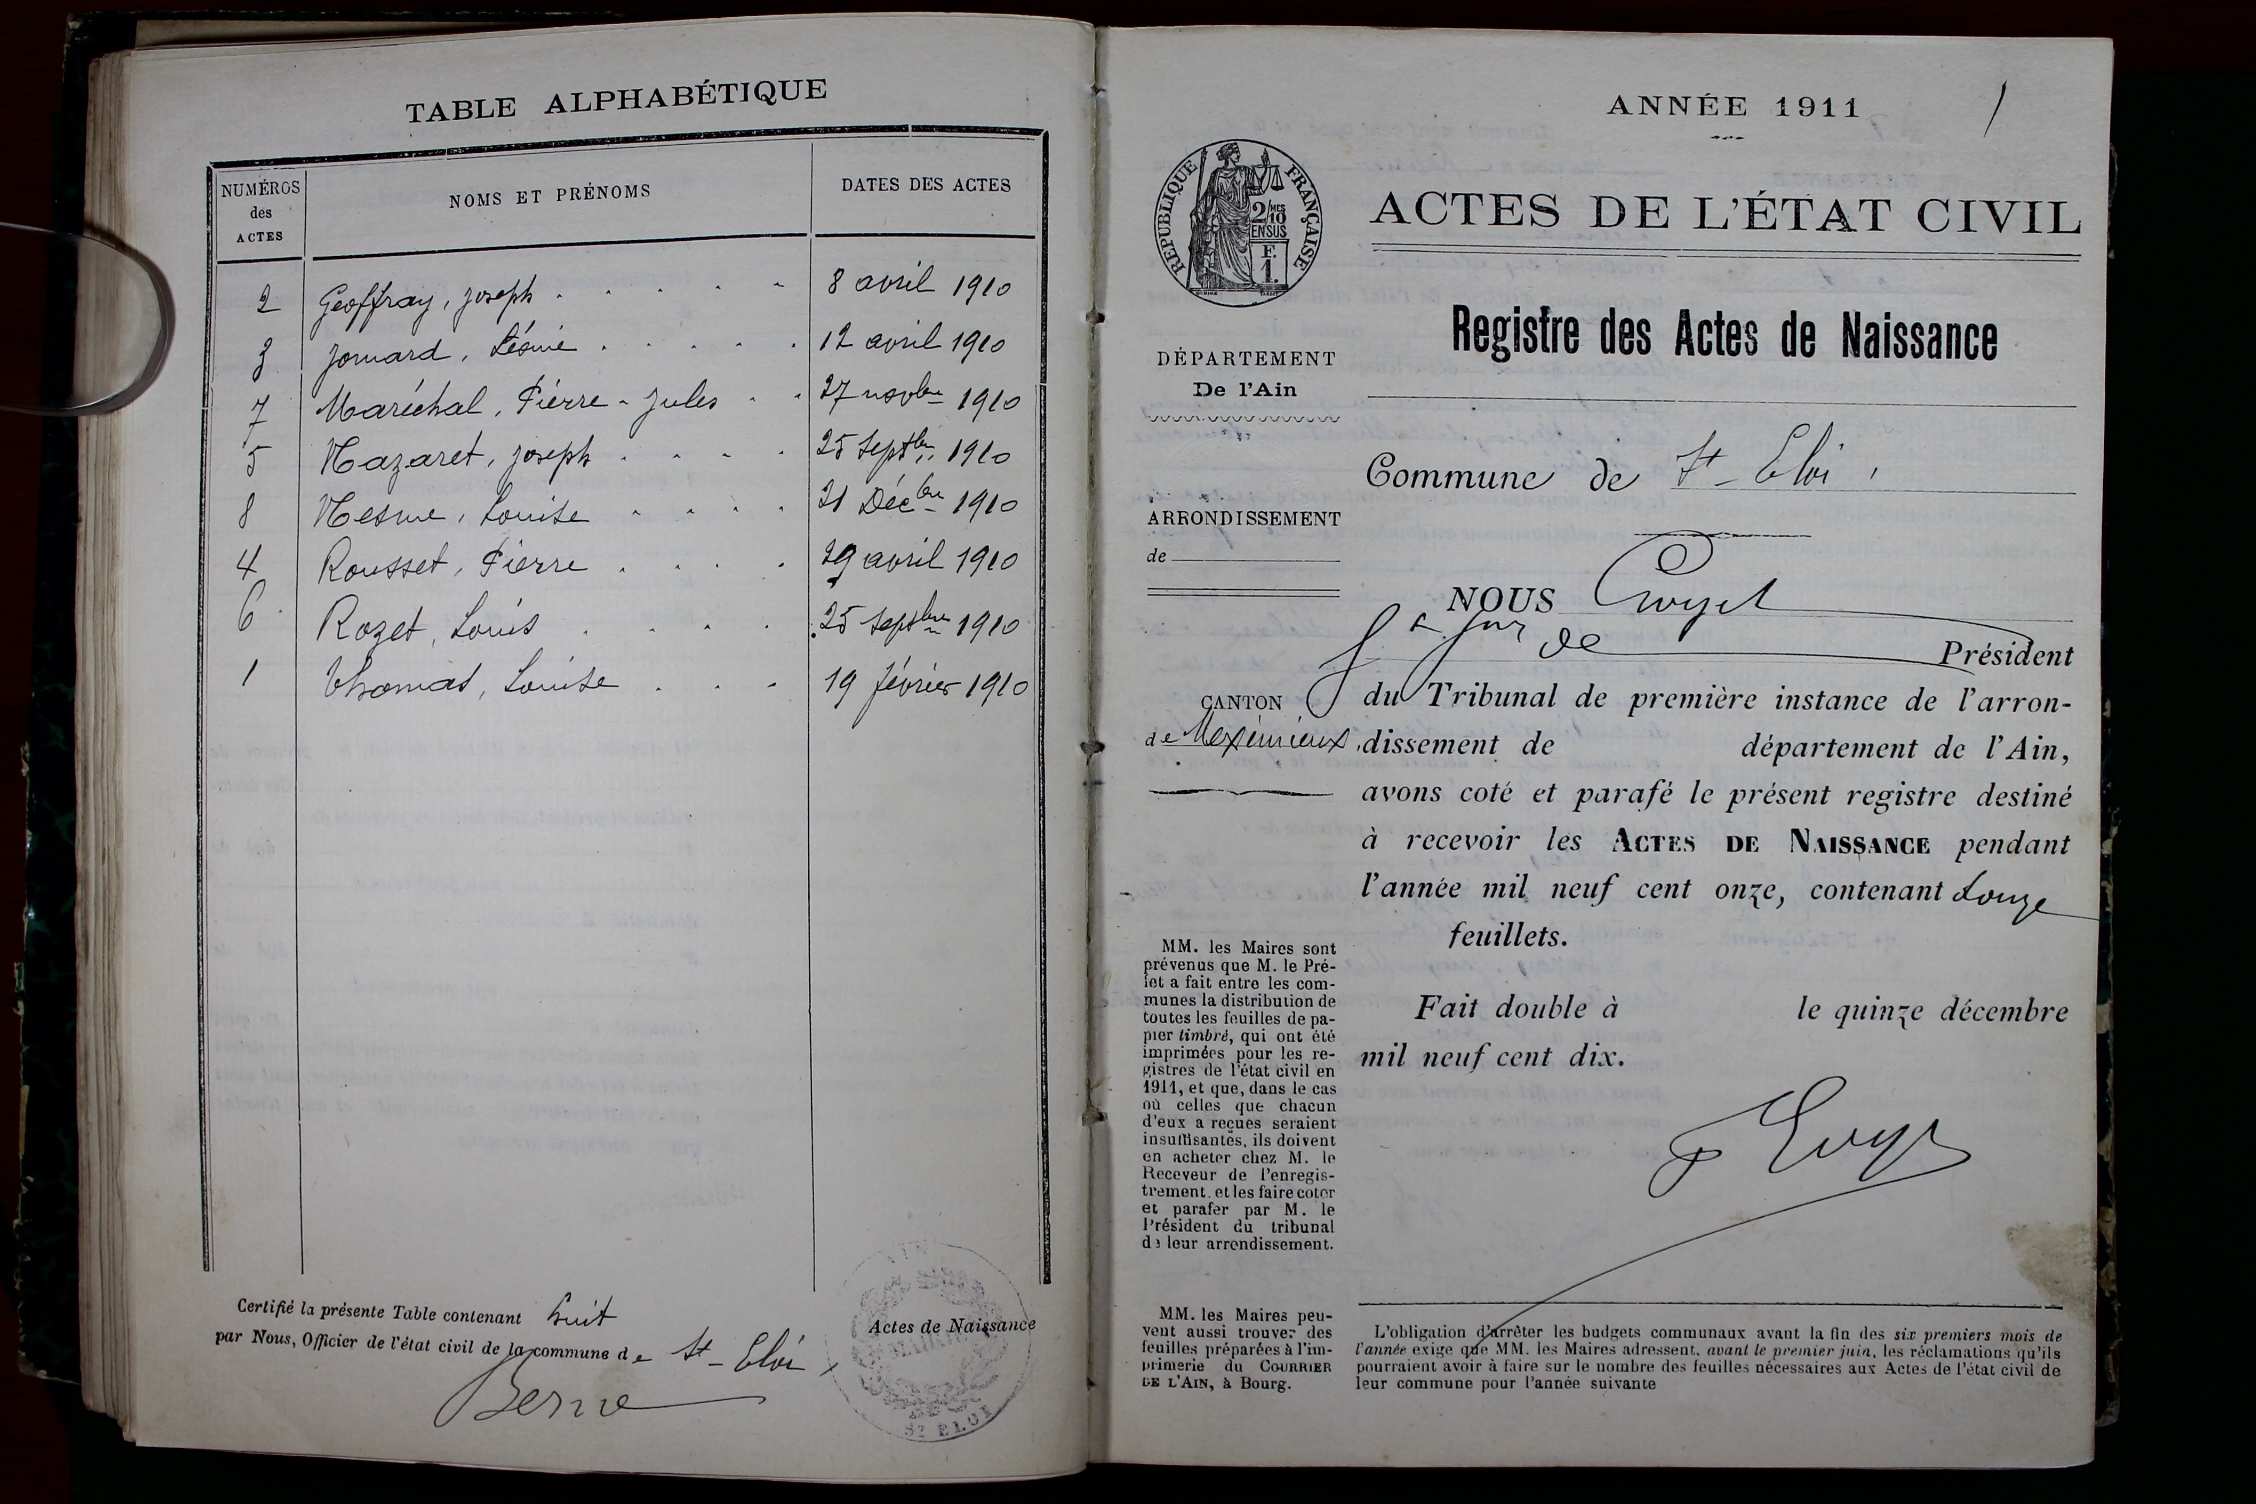 TABLE ALPHABÉTIQUE
NUMÉROS des ACTES
NOMS ET PRÉNOMS
DATES DES ACTES
2 Geoffray, Joseph . . . . . 8 avril 1910
3 Jomard, . . . . . 12 avril 1910
7 Maréchal, Pierre-Jules . . 27 novbre 1910
5 Nazaret, Joseph . . . . 25 septbre 1910
8 Nesme, Louise . . . . 21 Décbre 1910
4 Rousset, Pierre . . . . 29 avril 1910
6 Rozet, Louis . . . . 25 septbre 1910
1 Thomas, Louise . . . 19 février 1910
Certifié la présente Table contenant huit Actes de Naissance
par Nous, Officier de l'état civil de la commune de St-Eloi
Berne
AIN
MAIRIE
ST ELOI
ANNÉE 1911
1
RÉPUBLIQUE FRANÇAISE
2/10 MES
EN SUS
F.
1.
ACTES DE L'ÉTAT CIVIL
Registre des Actes de Naissance
DÉPARTEMENT
De l'Ain
Commune de St-Eloi
ARRONDISSEMENT
de
CANTON
de Meximieux
NOUS
Président
du Tribunal de première instance de l'arron-
dissement de département de l'Ain,
avons coté et parafé le présent registre destiné
à recevoir les ACTES DE NAISSANCE pendant
l'année mil neuf cent onze, contenant
feuillets.
Fait double à le quinze décembre
mil neuf cent dix.
MM. les Maires sont
prévenus que M. le Pré-
fet a fait entre les com-
munes la distribution de
toutes les feuilles de pa-
pier timbré, qui ont été
imprimées pour les re-
gistres de l'état civil en
1911, et que, dans le cas
où celles que chacun
d'eux a reçues seraient
insuffisantes, ils doivent
en acheter chez M. le
Receveur de l'enregis-
trement. et les faire coter
et parafer par M. le
Président du tribunal
de leur arrondissement.
MM. les Maires peu-
vent aussi trouver des
feuilles préparées à l'im-
primerie du COURRIER
DE L'AIN, à Bourg.
L'obligation d'arrêter les budgets communaux avant la fin des six premiers mois de
l'année exige que MM. les Maires adressent, avant le premier juin, les réclamations qu'ils
pourraient avoir à faire sur le nombre des feuilles nécessaires aux Actes de l'état civil de
leur commune pour l'année suivante